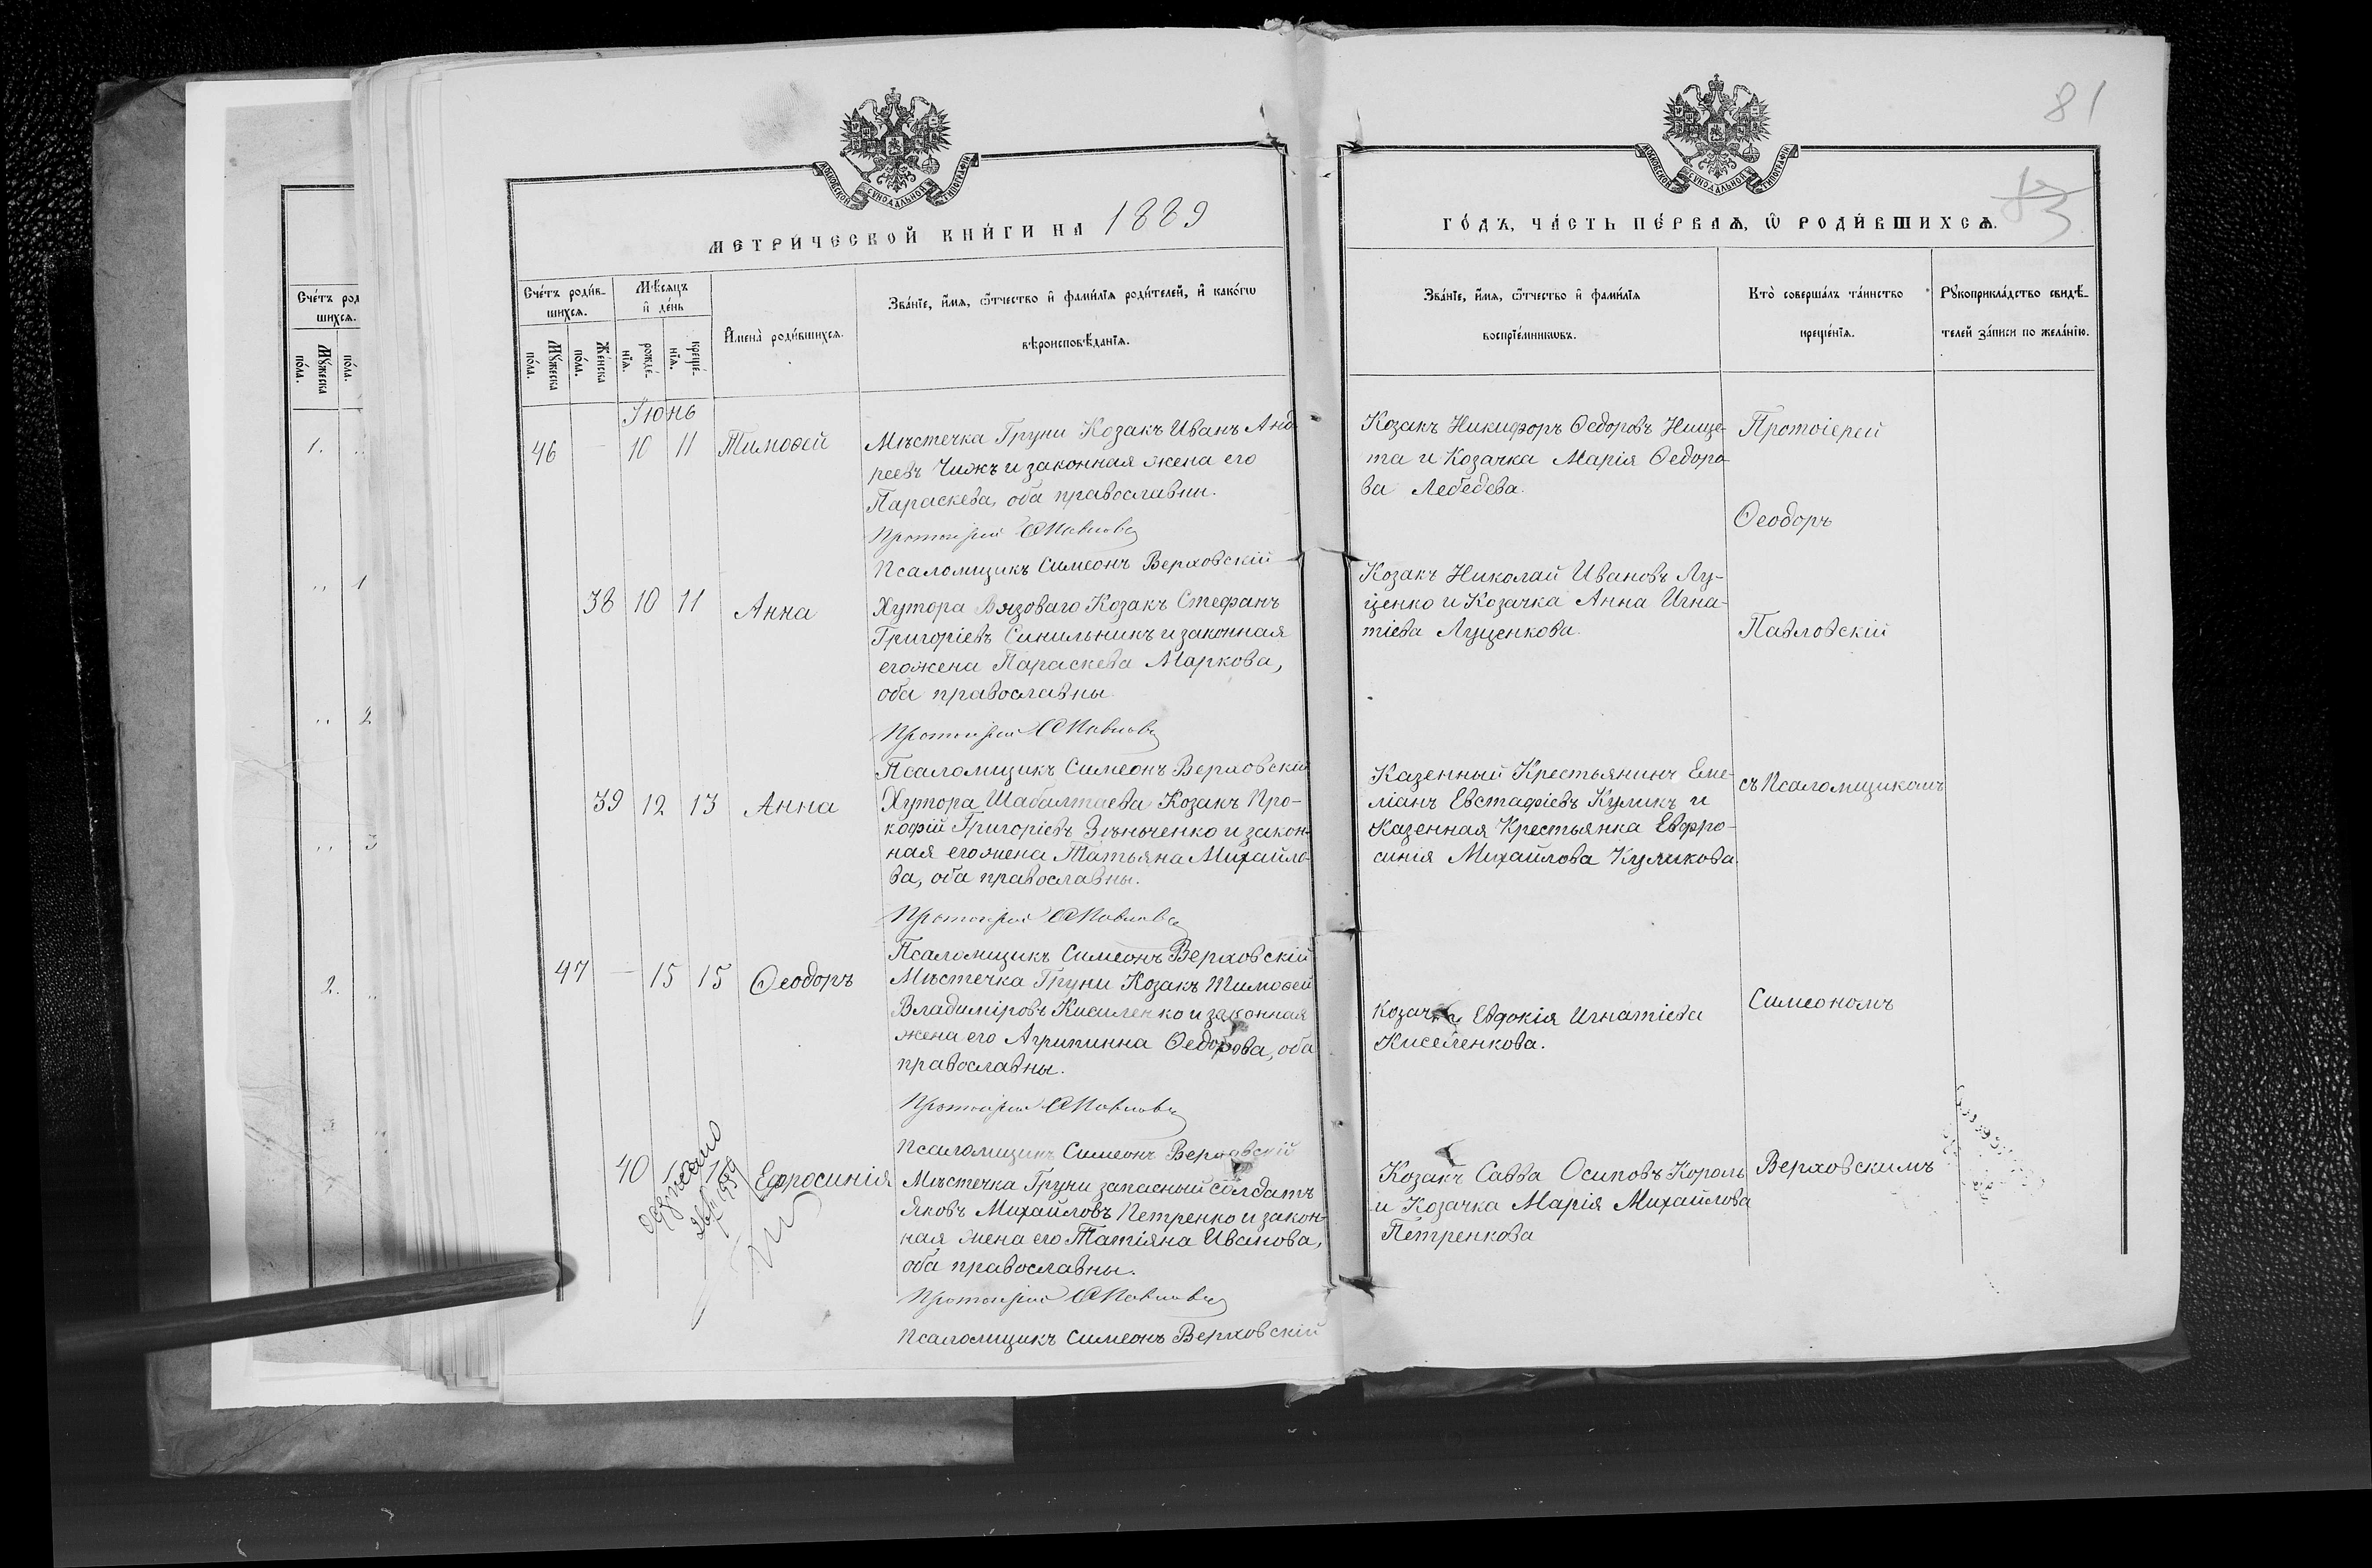 81
83
МОСКОВСКОЙ СѴНОДАЛЬНОЙ ТИПОГРАФІИ
МОСКОВСКОЙ СѴНОДАЛЬНОЙ ТИПОГРАФІИ
МЕТРИ́ЧЕСКОЙ КНИ́ГИ НА 1889
ГО́ДЪ, ЧА́СТЬ ПЕ́РВАѦ, Ѡ҆ РОДИ́ВШИХСѦ.
Сче́тъ род
шихсѧ.
Мꙋ́жеска по́ла.
по́ла.
Сче́тъ роди́в-
шихсѧ.
Мꙋ́жеска по́ла.
Же́нска по́ла.
Мѣ́сяцъ
и҆ де́нь
рожде́-нїѧ.
креще́-нїѧ.
И҆мена̀ роди́вшихсѧ.
Зва́нїе, и҆́мѧ, ѻ҆́тчество и҆ фами́лїѧ роди́телей, и҆ како́гѡ
вѣроисповѣ́данїѧ.
Зва́нїе, и҆́мѧ, ѻ҆́тчество и҆ фами́лїѧ
воспрїе́мникѡвъ.
Кто̀ соверша́лъ та́инство
креще́нїѧ.
Рꙋкоприкла́дство свидѣ́-
телей за́писи по жела́нїю.
1.
1
2
3
2.
Іюнь
46 10 11 Тимоѳей
Мѣстечка Груни Козакъ Иванъ Анд
реевъ Чижъ и законная жена его
Параскева, оба православни.
Протоіерей Ѳ Павловс
Псаломщикъ Симеонъ Верховскій
Козакъ Никифоръ Ѳедоровъ Нище-
та и Козачка Марія Ѳедоро-
ва Лебедева.
Протоіерей
Ѳеодоръ
Павловскій
съ Псаломщикомъ
Симеономъ
Верховскимъ
38 10 11 Анна
Хутора Вязоваго Козакъ Стефанъ
Григоріевъ Синильникъ и законная
его жена Параскева Маркова,
оба православны.
Протоіерей Ѳ Павловс
Псаломщикъ Симеонъ Верховскій
Козакъ Николай Ивановъ Лу-
ценко и Козачка Анна Игна-
тіева Луценкова.
39 12 13 Анна
Хутора Шабалтаева Козакъ Про-
кофій Григоріевъ Зѣньченко и закон-
ная его жена Татьяна Михайло-
ва, оба православны.
Протоіерей Ѳ Павловс
Псаломщикъ Симеонъ Верховскій
Казенный Крестьянинъ Еме-
ліанъ Евстафіевъ Куликъ и
Казенная Крестьянка Евфро-
синія Михайлова Куликова.
47 — 15 15 Ѳеодоръ
Мѣстечка Груни Козакъ Тимоѳей
Владиміровъ Кисиленко и законная
жена его Агрипинна Ѳедорова, оба
православны.
Протоіерей Ѳ Павловс
Псаломщикъ Симеонъ Верховскій
Козачка Евдокія Игнатіева
Киселенкова.
40 Ефросинія
1959
Мѣстечка Груни запасный солдатъ
Яковъ Михайловъ Петренко и закон-
ная жена его Татіяна Иванова,
оба православны.
Протоіерей Ѳ Павловс
Псаломщикъ Симеонъ Верховскій
Козакъ Савва Осиповъ Король
и Козачка Марія Михайлова
Петренкова